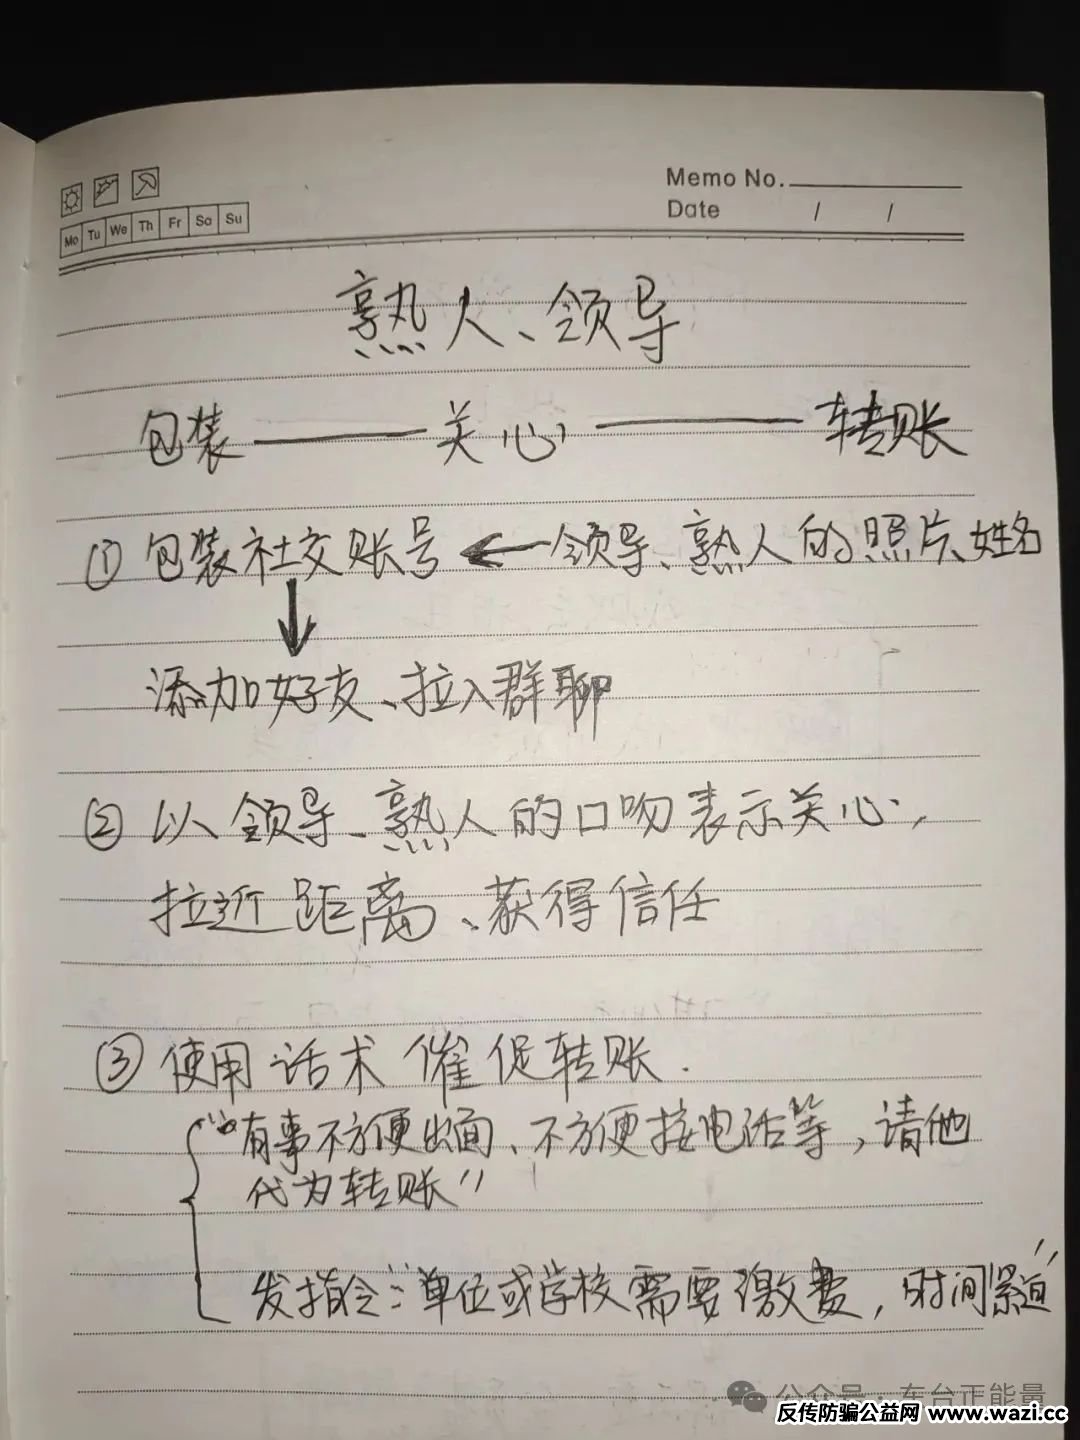 Memo No.
Date / /
Mo Tu We Th Fr Sa Su
熟人、领导
包装——关心——转账
① 包装社交账号 ← 领导、熟人的照片、姓名
↓
添加好友、拉入群聊
② 以领导、熟人的口吻表示关心,
拉近距离、获得信任
③ 使用话术催促转账.
“有事不方便出面、不方便接电话等,请他
代为转账”
发指令:“单位或学校需要缴费,时间紧迫”
公众号·东台正能量
反传防骗公益网 www.wazi.cc